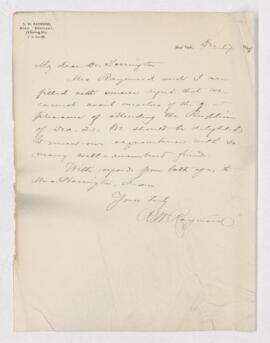 R. W. RAYMOND,
New York, Dec. 17
My dear Dr. Harrington
Mrs Raymond and I are
filled with sincere regret that we
cannot avail ourselves of the
pleasure of attending the Reception
of Dec. 21. We should be delighted
to meet our
many well-remembered friends.
With regards from both of us to
Mrs Harrington, I am
Yours truly
R W Raymond